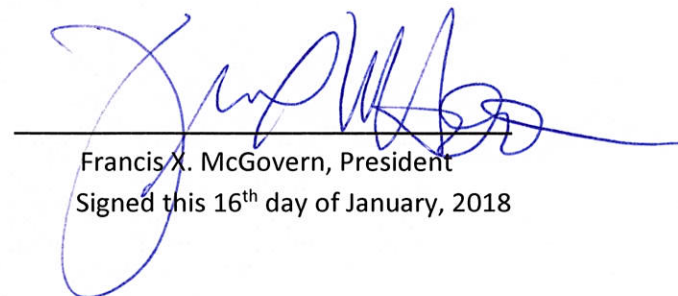 Francis X. McGovern, President
Signed this 16th day of January, 2018